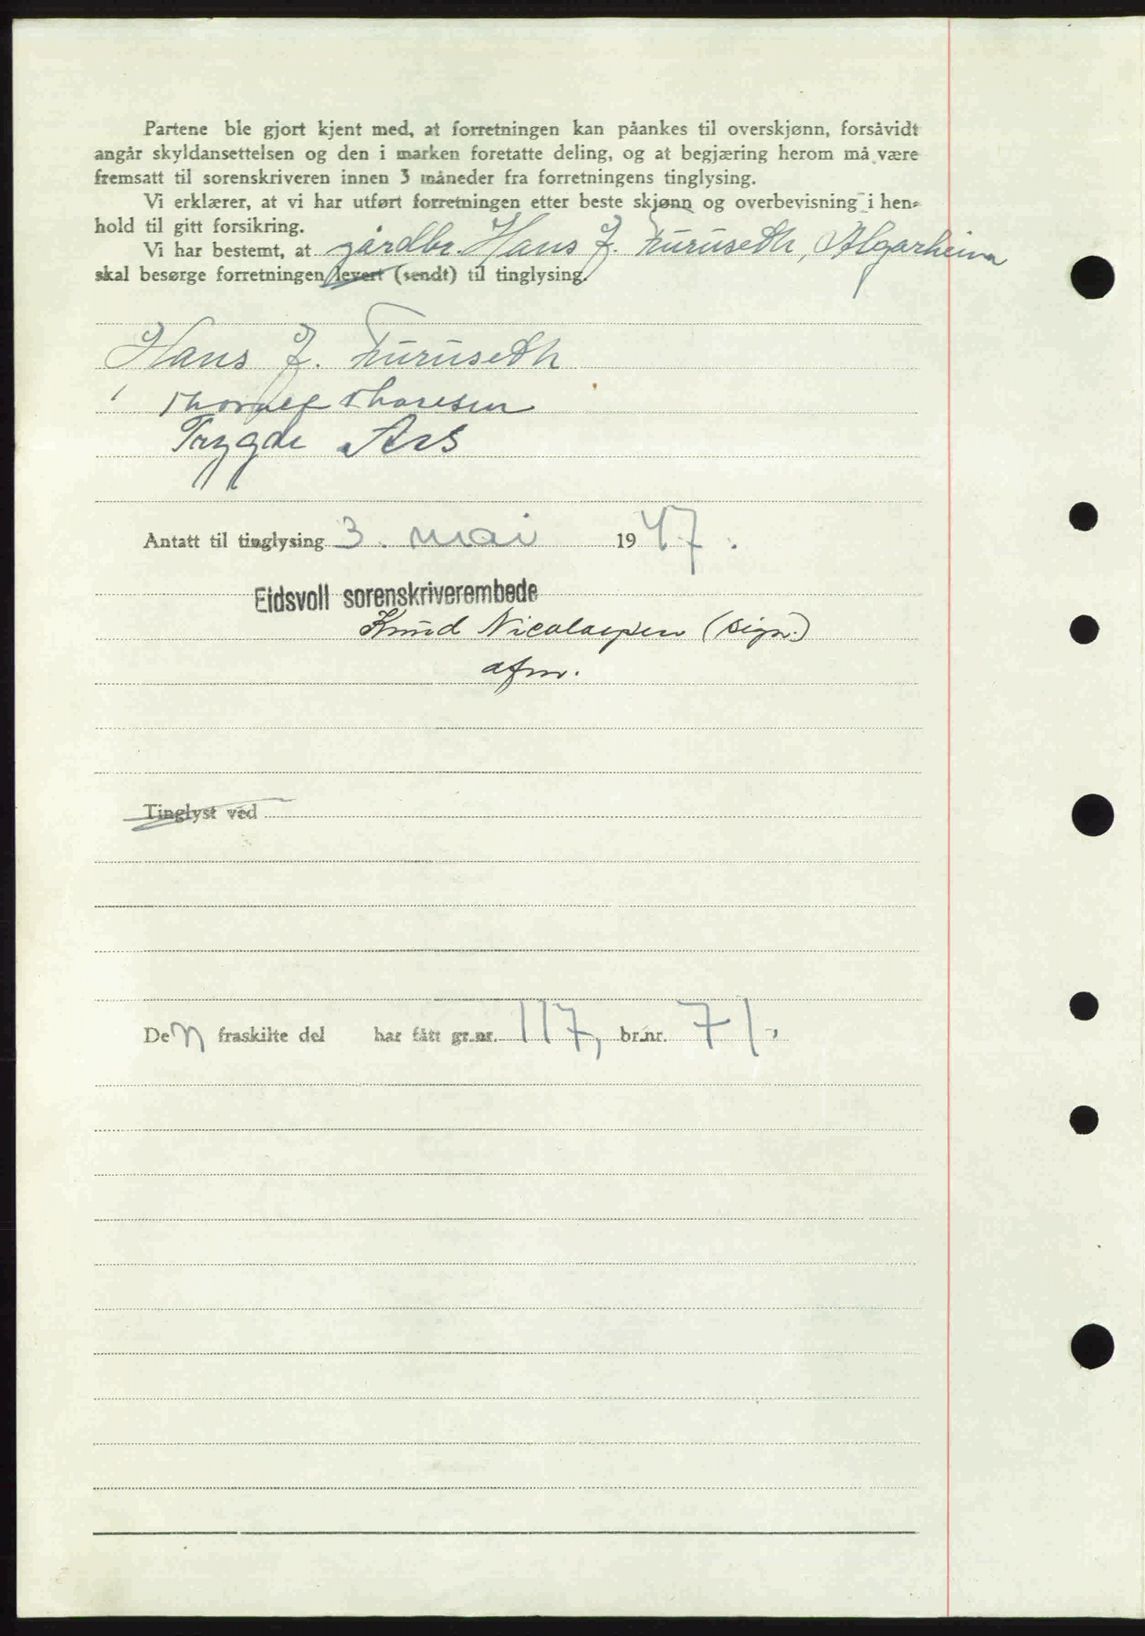 Partene ble gjort kjent med, at forretningen kan påankes til overskjønn, forsåvidt
angår skyldansettelsen og den i marken foretatte deling, og at begjæring herom må være
fremsatt til sorenskriveren innen 3 måneder fra forretningens tinglysing.
Vi erklærer, at vi har utført forretningen etter beste skjønn og overbevisning i hen-
hold til gitt forsikring.
Vi har bestemt, at gårdbr. Hans J. Furuseth, Algarheim
skal besørge forretningen levert (sendt) til tinglysing.
Hans J. Furuseth
Thorleif Thoresen
Trygve Aas
Antatt til tinglysing 3. mai 1947.
Eidsvoll sorenskriverembede
Knud Nicolaysen (sign.)
afm.
Tinglyst ved
Den fraskilte del har fått gr.nr. 117, br.nr. 71.